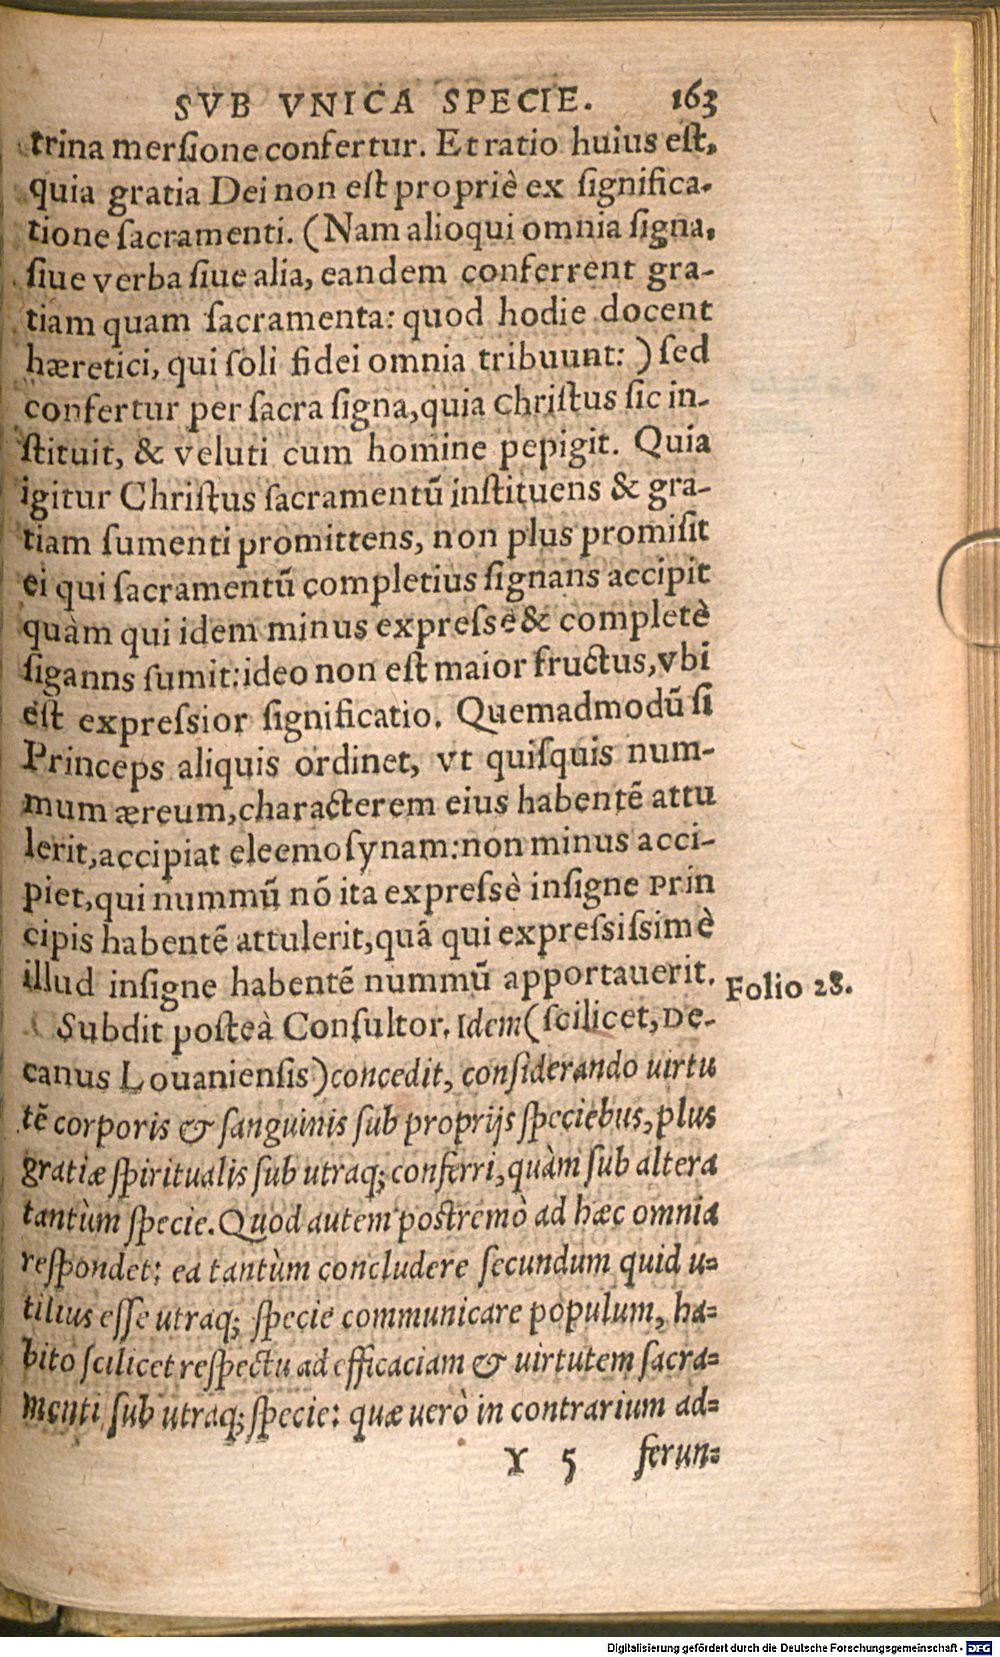 SVB VNICA SPECIE. 163
trina mersione confertur. Et ratio huius est,
quia gratia Dei non est propriè ex significa-
tione sacramenti. (Nam alioqui omnia signa,
siue verba siue alia, eandem conferrent gra-
tiam quam sacramenta: quod hodie docent
hæretici, qui soli fidei omnia tribuunt: ) sed
confertur per sacra signa, quia christus sic in-
stituit, & veluti cum homine pepigit. Quia
igitur Christus sacramentū instituens & gra-
tiam sumenti promittens, non plus promisit
ei qui sacramentū completius signans accipit
quàm qui idem minus expresse & completè
siganns sumit: ideo non est maior fructus, vbi
est expressior significatio. Quemadmodū si
Princeps aliquis ordinet, vt quisquis num-
mum æreum, characterem eius habentē attu
lerit, accipiat eleemosynam: non minus acci-
piet, qui nummū nō ita expressè insigne Prin
cipis habentē attulerit, quā qui expressissimè
illud insigne habentē nummū apportauerit.
Folio 28.
Subdit posteà Consultor. Idem (scilicet, De-
canus Louaniensis) concedit, considerando uirtu
tē corporis & sanguinis sub proprijs speciebus, plus
gratiæ spiritualis sub utraq; conferri, quàm sub altera
tantùm specie. Quod autem postremò ad hæc omnia
respondet: ea tantùm concludere secundum quid u-
tilius esse utraq; specie communicare populum, ha-
bito scilicet respectu ad efficaciam & uirtutem sacra-
menti sub utraq; specie: quæ uerò in contrarium ad-
Y 5 ferun-
Digitalisierung gefördert durch die Deutsche Forschungsgemeinschaft - DFG